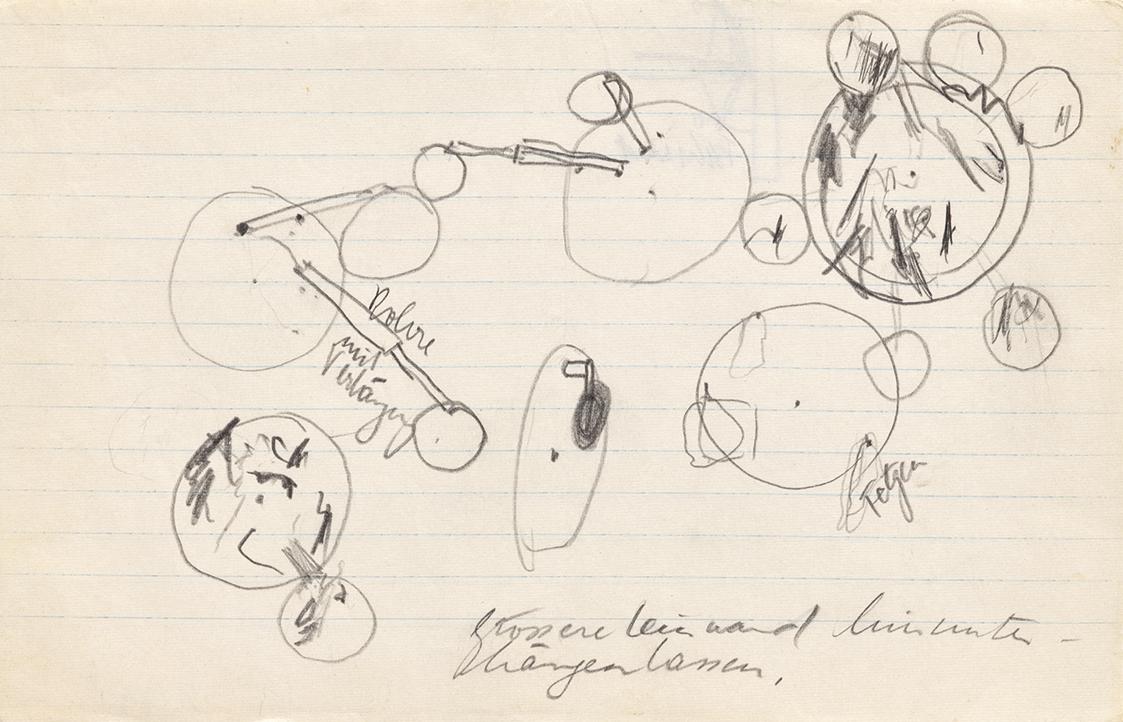 Rohre
mit
Verlänger
Fetzen
grössere leinwand hinunter-
hängenlassen,